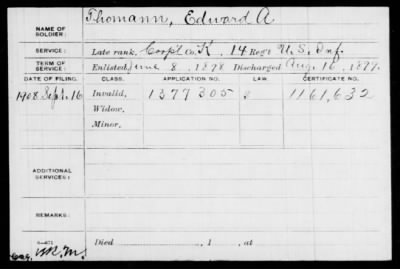 NAME OF SOLDIER: Thomann, Edward A
SERVICE: Late rank, Corpl Co. K, 14 Reg't U. S. Inf.
TERM OF SERVICE: Enlisted June 8, 1898 Discharged Aug. 16, 1899.
DATE OF FILING. CLASS. APPLICATION NO. LAW. CERTIFICATE NO.
1908 Sept. 16 Invalid, 1377305 1161,632
Widow,
Minor,
ADDITIONAL SERVICES:
REMARKS:
Died , 1 , at